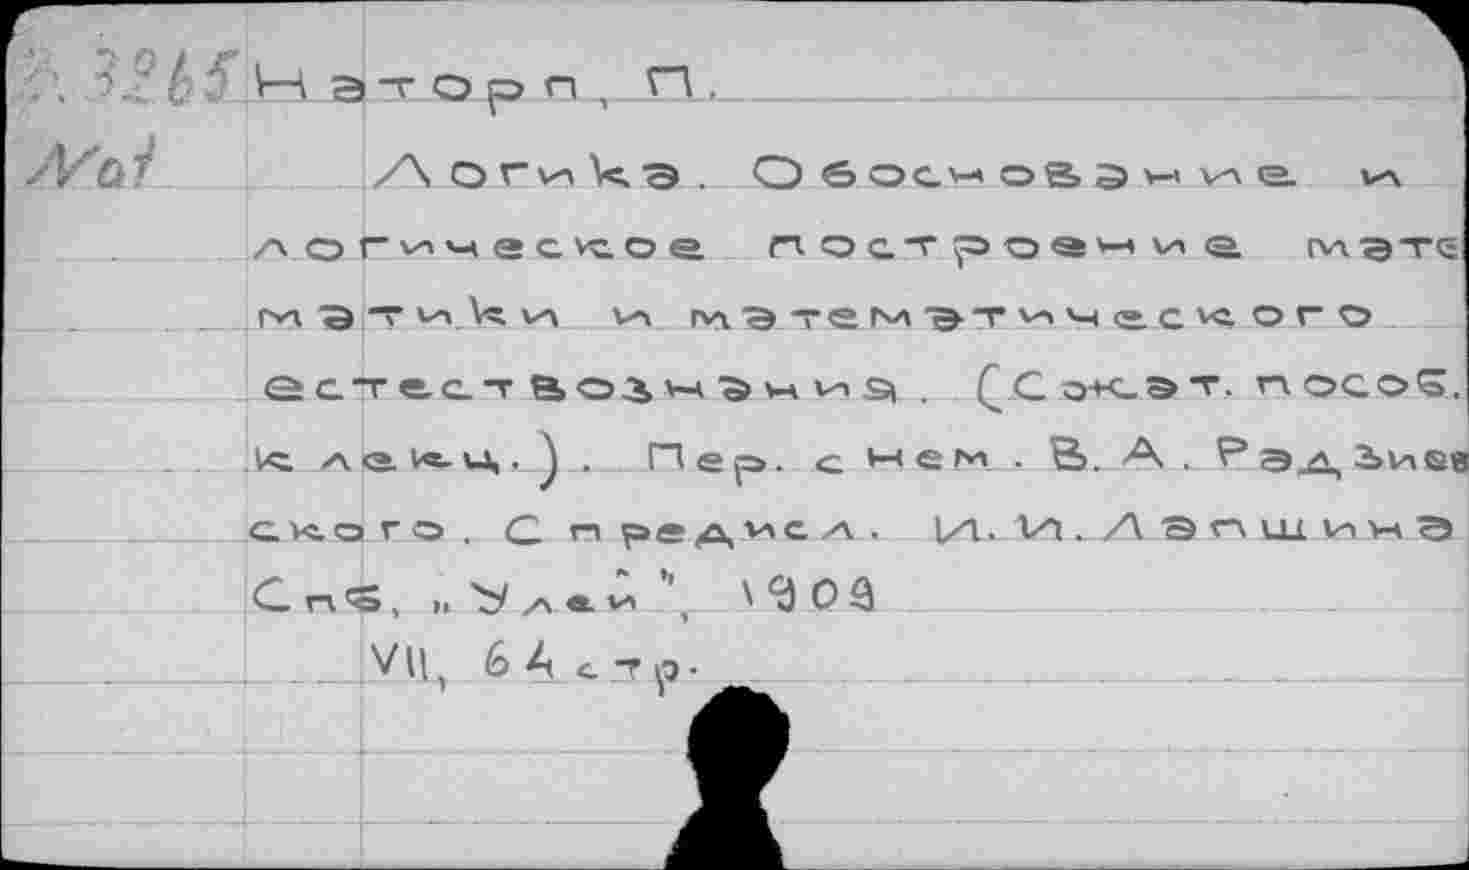 3265 Наторп, П.
№1 Логика. Обоснование и
логическое построение мате
матики и математического
естествознания. (Сжат. пособ.
к лекц.). Пер. с нем. В. А. Радзиев
ского. С предисл. И. И. Лапшина
Спб, „Улей", 1909
VII, 64 стр.